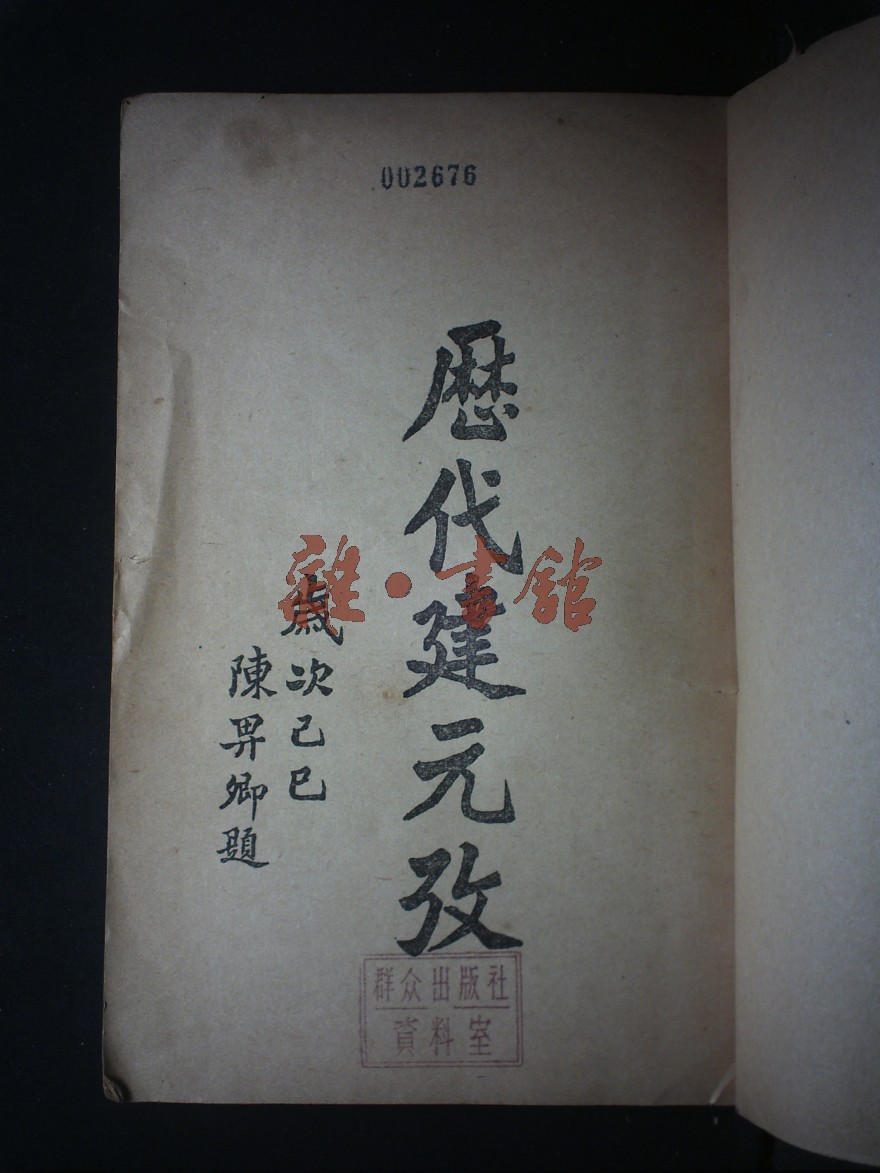 002676
歷代建元攷
歲次己巳
陳畀卿題
雜·書館
群众出版社
資料室